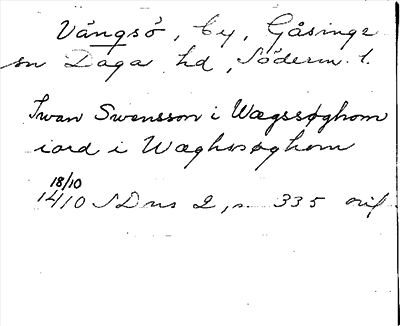 Vängsö, by, Gåsinge
sn Daga hd, Söderm. l.
Iwan Swensson i Wægssøghom
iord i Wæghssøghom
18/10
1410 SDns 2, s. 335 orig